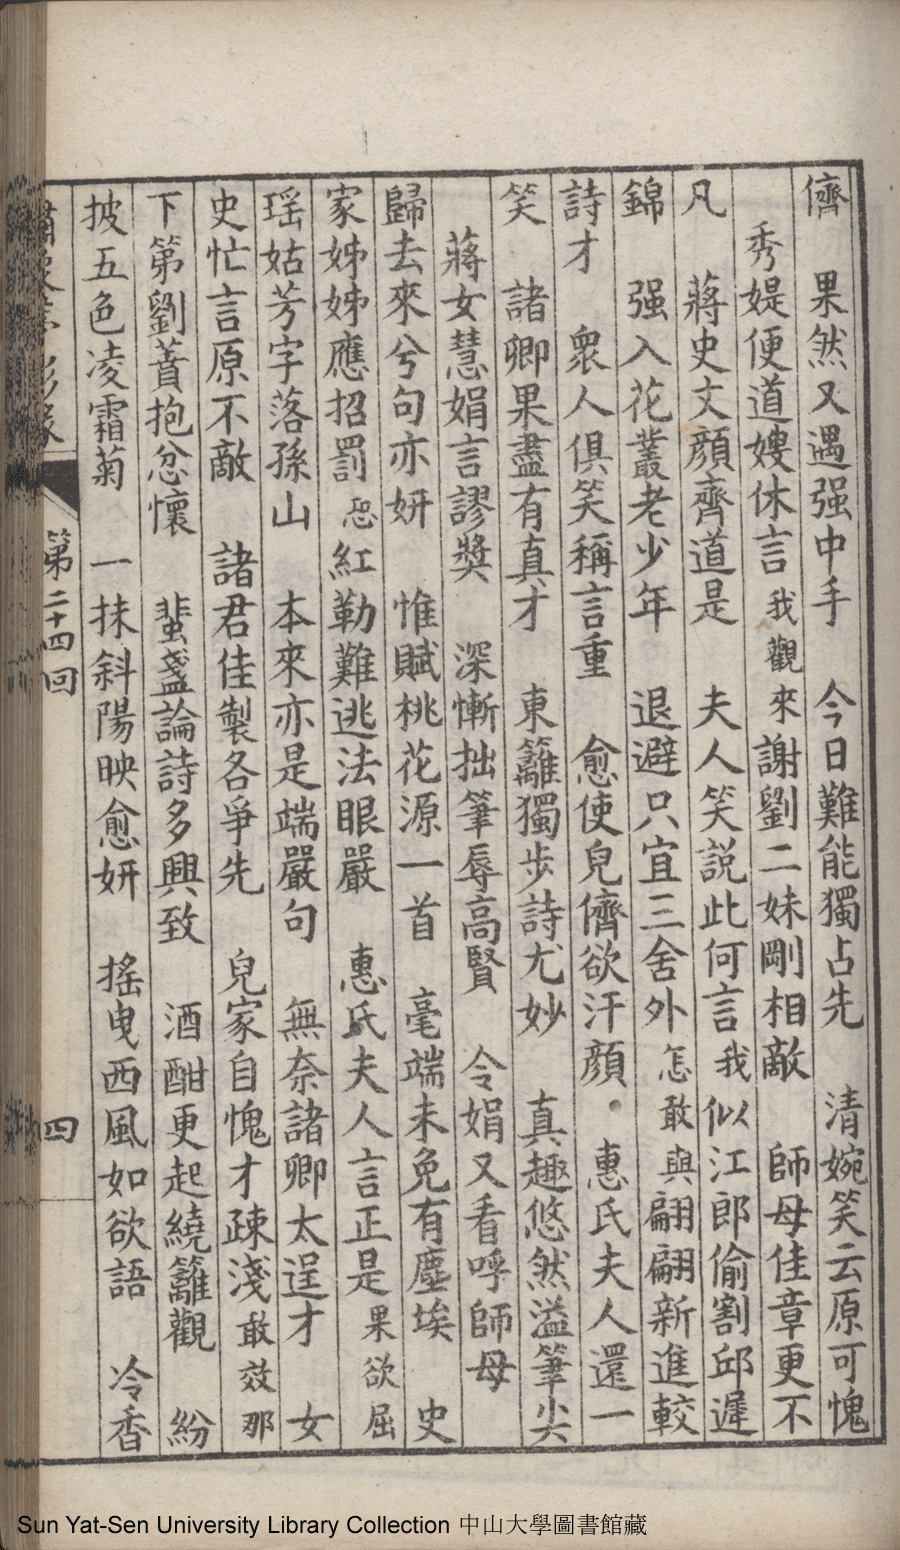 儕　果然又遇强中手　今日難能獨占先　清婉笑云原可愧
秀媞便道嫂休言　我觀來謝劉二妹剛相敵　師母佳章更不
凡　蔣史丈顏齊道是　夫人笑説此何言　我似江郎偷割邱遲
錦　强入花叢老少年　退避只宜三舍外　怎敢與翩翩新進較
詩才　衆人俱笑稱言重　愈使兒儕欲汗顏　惠氏夫人還一
笑　諸卿果盡有真才　東籬獨步詩尤妙　真趣悠然溢筆尖
蔣女慧娟言謬獎　深慚拙筆辱高賢　令娟又看呼師母
歸去來兮句亦妍　惟賦桃花源一首　毫端未免有塵埃　史
家姊姊應招罰　恐紅勒難逃法眼嚴　惠氏夫人言正是　果欲屈
瑶姑芳字落孫山　本來亦是端嚴句　無奈諸卿太逞才　女
史忙言原不敵　諸君佳製各爭先　兒家自愧才疎淺　敢效那
下第劉蕡抱忿懷　蜚盞論詩多興致　酒酣更起繞籬觀　紛
披五色凌霜菊　一抹斜陽映愈妍　搖曳西風如欲語　冷香
第二十四回
四
Sun Yat-Sen University Library Collection 中山大學圖書館藏